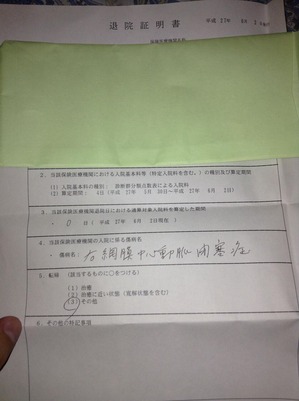 退院証明書
平成 27年
2．当該保険医療機関における入院基本料等（特定入院料を含む。）の種別及び算定期間
（1）入院基本料の種別： 診断群分類点数表による入院料
（2）算定期間： 4日（平成 27年 日～平成 27年 8月 2日）
3．当該保険医療機関退院日における通算対象入院料を算定した期間
・ 0 日（平成 27年 8月 2日現在）
4．当該保険医療機関の入院に係る傷病名
・傷病名： 右網膜中心動脈閉塞症
5．転帰 （該当するものに○をつける）
（1）治癒
（2）治癒に近い状態（寛解状態を含む）
（3）その他
6．その他の特記事項